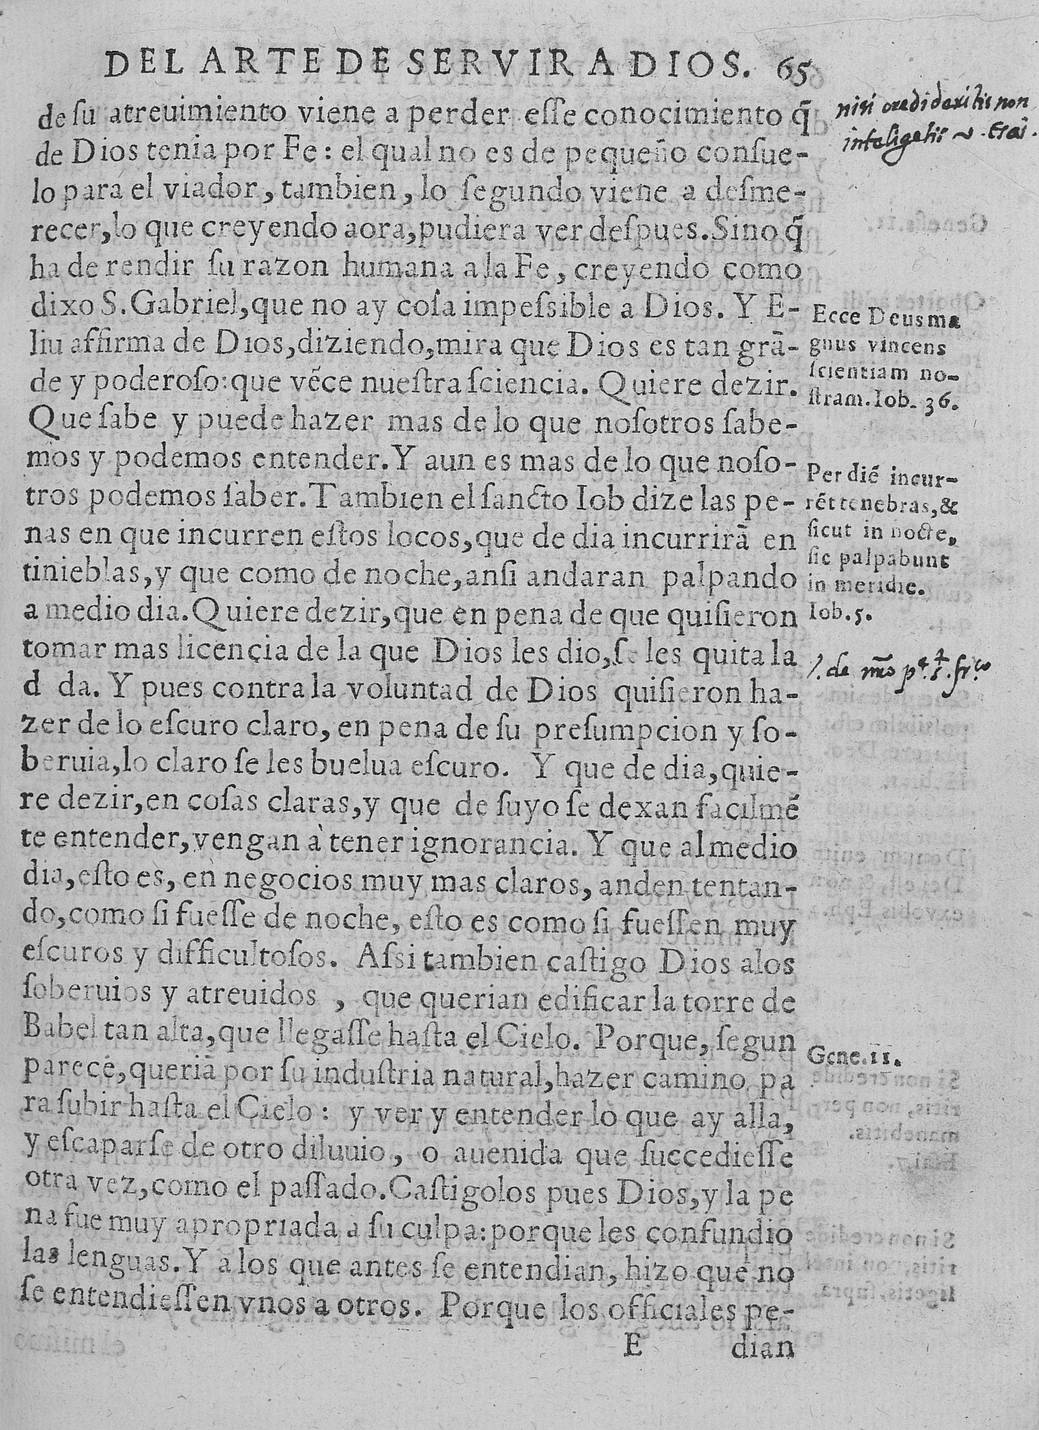 DEL ARTE DE SERVIR A DIOS. 65
de ſu atreuimiento viene a perder eſſe conocimiento q̃
de Dios tenia por Fe: el qual no es de pequeño conſue-
lo para el viador, tambien, lo ſegundo viene a deſme-
recer, lo que creyendo aora, pudiera ver deſpues. Sino q̃
ha de rendir ſu razon humana a la Fe, creyendo como
dixo S. Gabriel, que no ay coſa impeſsible a Dios. Y E-
liu affirma de Dios, diziendo, mira que Dios es tan grã-
de y poderoſo: que vẽce nueſtra ſciencia. Quiere dezir.
Que ſabe y puede hazer mas de lo que noſotros ſabe-
mos y podemos entender. Y aun es mas de lo que noſo-
tros podemos ſaber. Tambien el ſancto Iob dize las pe-
nas en que incurren eſtos locos, que de dia incurrirã en
tinieblas, y que como de noche, anſi andaran palpando
a medio dia. Quiere dezir, que en pena de que quiſieron
tomar mas licencia de la que Dios les dio, ſ. les quita la
d da. Y pues contra la voluntad de Dios quiſieron ha-
zer de lo eſcuro claro, en pena de ſu preſumpcion y ſo-
beruia, lo claro ſe les buelua eſcuro. Y que de dia, quie-
re dezir, en coſas claras, y que de ſuyo ſe dexan facilmẽ
te entender, vengan à tener ignorancia. Y que al medio
dia, eſto es, en negocios muy mas claros, anden tentan-
do, como ſi fueſſe de noche, eſto es como ſi fueſſen muy
eſcuros y difficultoſos. Aſsi tambien caſtigo Dios a los
ſoberuios y atreuidos , que querian edificar la torre de
Babel tan alta, que llegaſſe haſta el Cielo. Porque, ſegun
parece, queriã por ſu induſtria natural, hazer camino pa
ra ſubir haſta el Cielo: y ver y entender lo que ay alla,
y eſcaparſe de otro diluuio, o auenida que ſuccedieſſe
otra vez, como el paſſado. Caſtigolos pues Dios, y la pe
na fue muy apropriada a ſu culpa: porque les confundio
las lenguas. Y a los que antes ſe entendian, hizo que no
ſe entendieſſen vnos a otros. Porque los officiales pe-
E dian
niſi credideritis non
inteligetis
Ecce Deus ma
gnus vincens
ſcientiam no-
ſtram. Iob. 36.
Per diẽ incur-
rẽt tenebras, &
ſicut in nocte,
ſic palpabunt
in meridie.
Iob. 5.
Gene. 11.